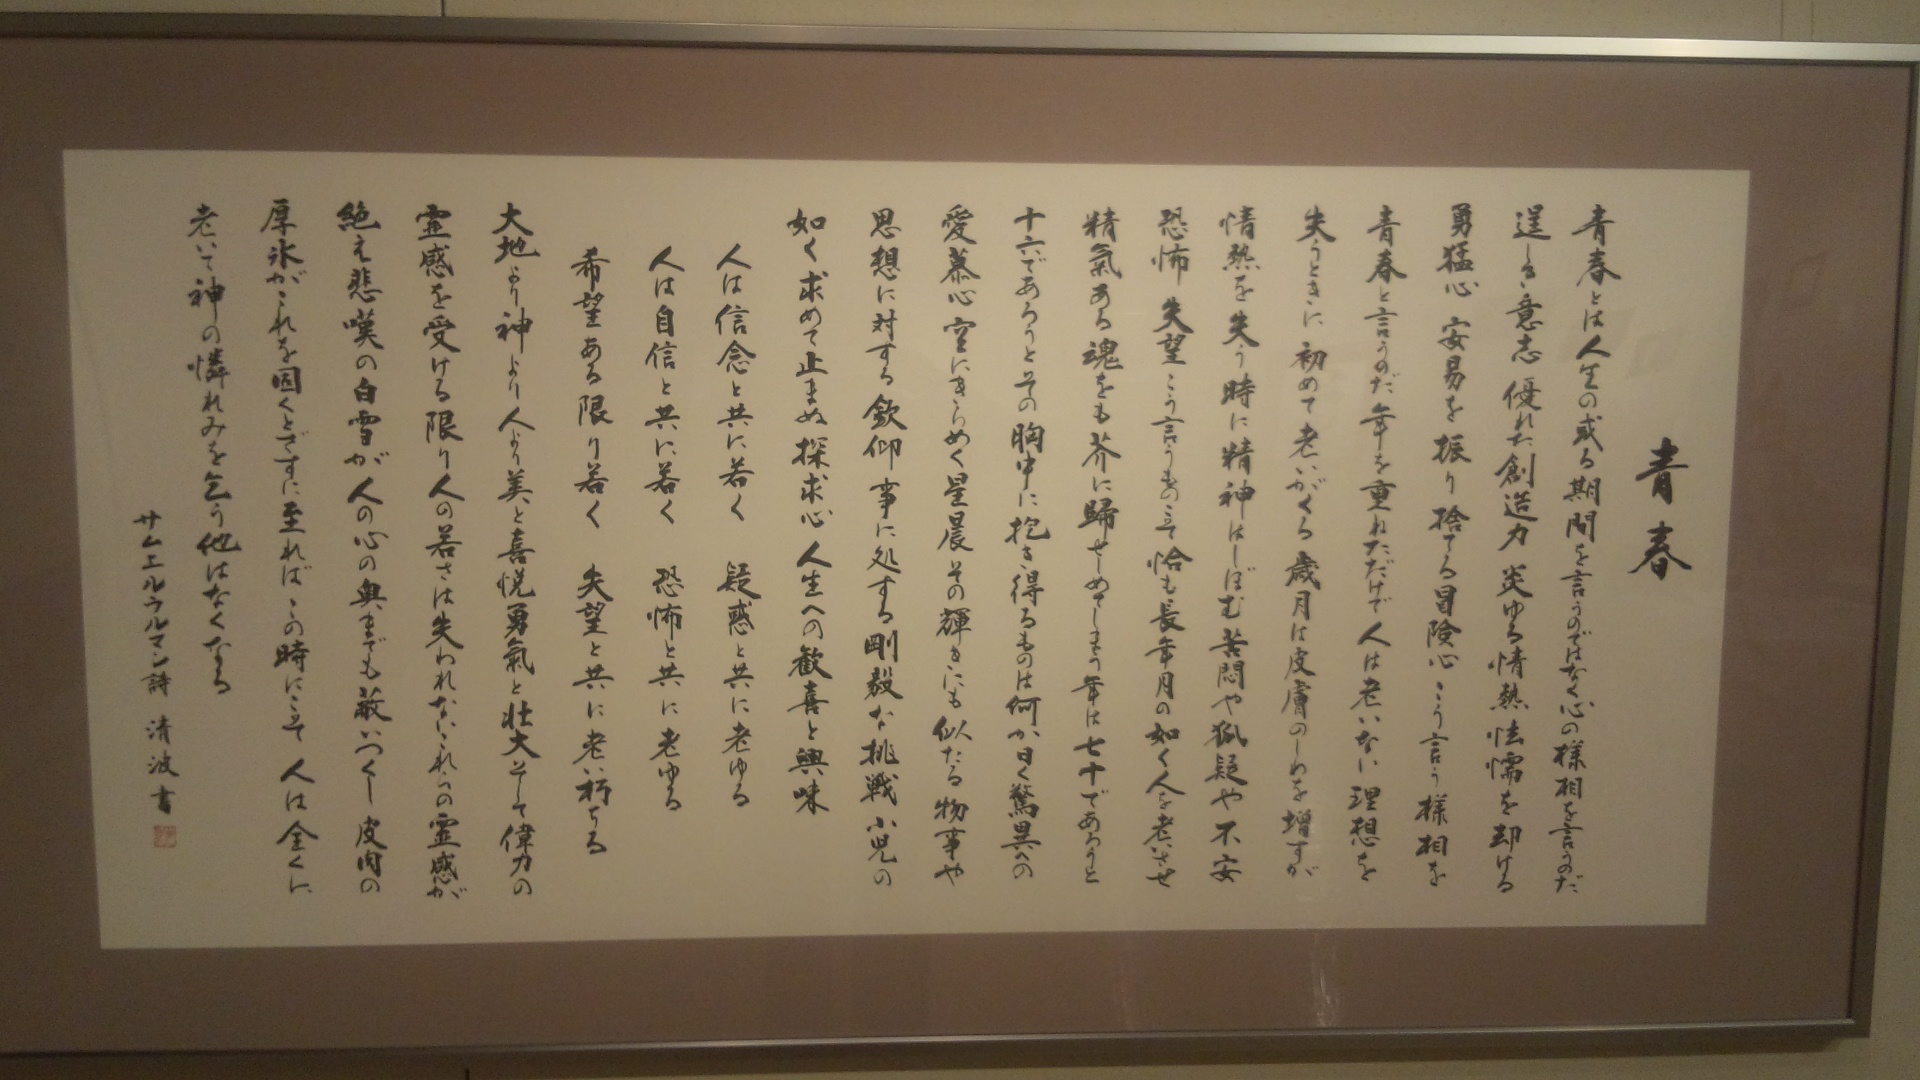 青春
青春とは人生の或る期間を言うのではなく心の様相を言うのだ
逞しい意志 優れた創造力 炎ゆる情熱 怯懦を却ける
勇猛心 安易を振り捨てる冒険心 こう言う様相を
青春と言うのだ 年を重ねただけで人は老いない 理想を
失うときに初めて老いがくる 歳月は皮膚のしわを増すが
情熱を失う時に精神はしぼむ 苦悶や狐疑や不安
恐怖 失望 こう言うもの立て恰も長年月の如く人を老いさせ
精氣ある魂をも芥に帰せしめてしまう 年は七十であろうと
十六であろうとその胸中に抱き得るものは何か 曰く驚異への
愛慕心 空にきらめく星晨その輝きにも似たる物事や
思想に対する欽仰 事に処する剛毅な挑戦 小児の
如く求めて止まぬ探求心 人生への歓喜と興味
人は信念と共に若く 疑惑と共に老ゆる
人は自信と共に若く 恐怖と共に老ゆる
希望ある限り若く 失望と共に老い朽ちる
大地より神より人より美と喜悦 勇氣と壮大そして偉力の
霊感を受ける限り人の若さは失われない これらの霊感が
絶え悲嘆の白雪が人の心の奥までも蔽いつくし皮肉の
厚氷がこれを固くとざすに至ればこの時にこそ人は全くに
老いて神の憐れみを乞う他はなくなる
サムエルウルマン詩 清波書